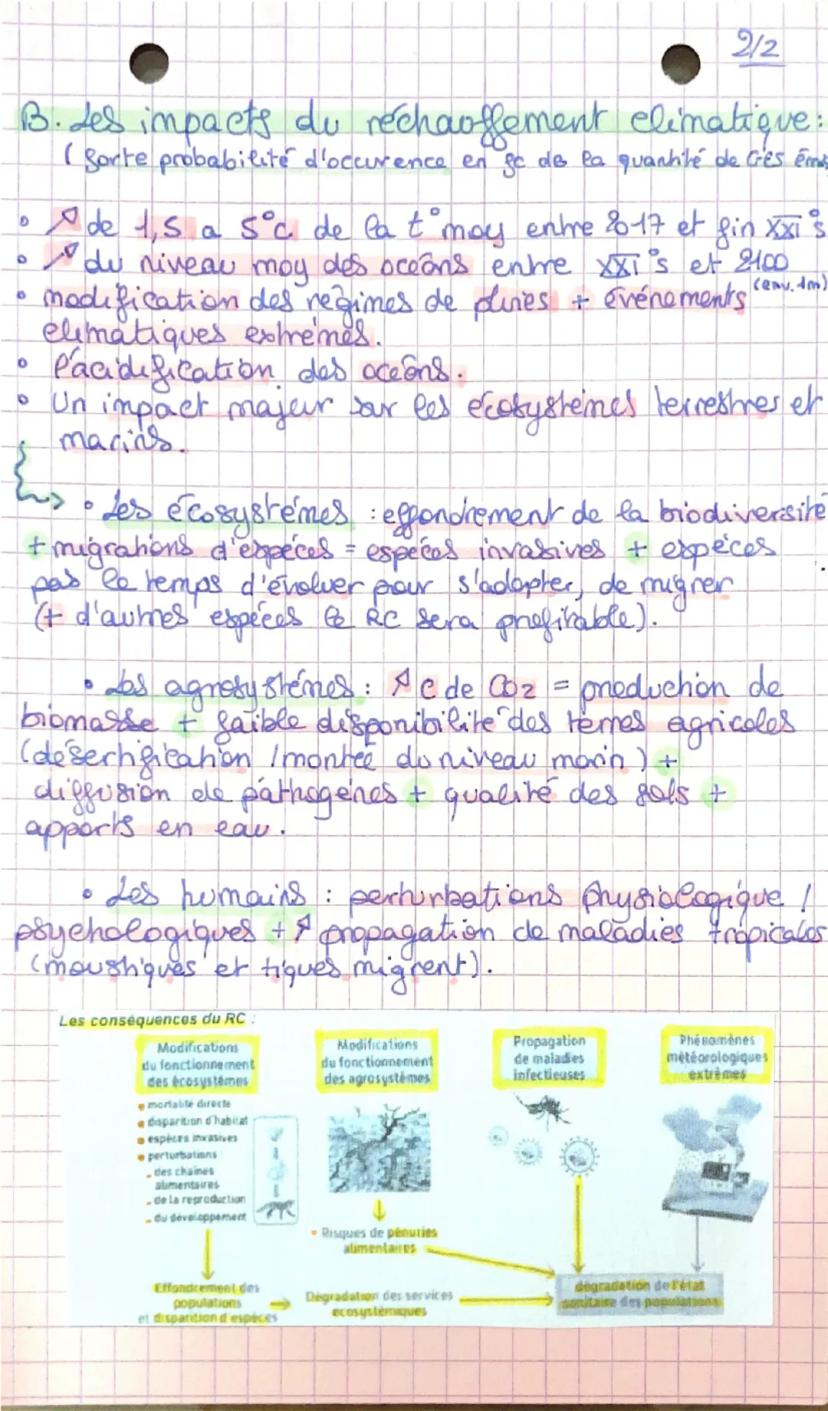 2/2
B. Les impacts du réchauffement climatique :
( forte probabilité d'occurence en fc de la quantité de GES émis
• ↗ de 1,5 à 5°C de la t° moy entre 2017 et fin XXI°s
• ↗ du niveau moy des océans entre XXI°s et 2100
(env. 1m)
• modification des régimes de pluies + événements
climatiques extrêmes.
• l'acidification des océans.
• Un impact majeur sur les écosystèmes terrestres et
marins.
→ • Les écosystèmes : effondrement de la biodiversité
+ migrations d'espèces = espèces invasives + espèces
pas le temps d'évoluer pour s'adapter, de migrer
(+ d'autres espèces le RC sera profitable).
• Les agrosystèmes : ↗ C de CO2 = production de
biomasse + faible disponibilité des terres agricoles
(désertification / montée du niveau marin ) +
diffusion de pathogènes + qualité des sols +
apports en eau.
• Les humains : perturbations physiologique /
psychologiques + ↗ propagation de maladies tropicales
(moustiques et tiques migrent).
Les conséquences du RC :
Modifications
du fonctionnement
des écosystèmes
• mortalité directe
• disparition d'habitat
• espèces invasives
• perturbations
- des chaînes
alimentaires
- de la reproduction
- du développement
Effondrement des
populations
et disparition d'espèces
Modifications
du fonctionnement
des agrosystèmes
• Risques de pénuries
alimentaires
Dégradation des services
écosystémiques
Propagation
de maladies
infectieuses
Phénomènes
météorologiques
extrêmes
dégradation de l'état
sanitaire des populations